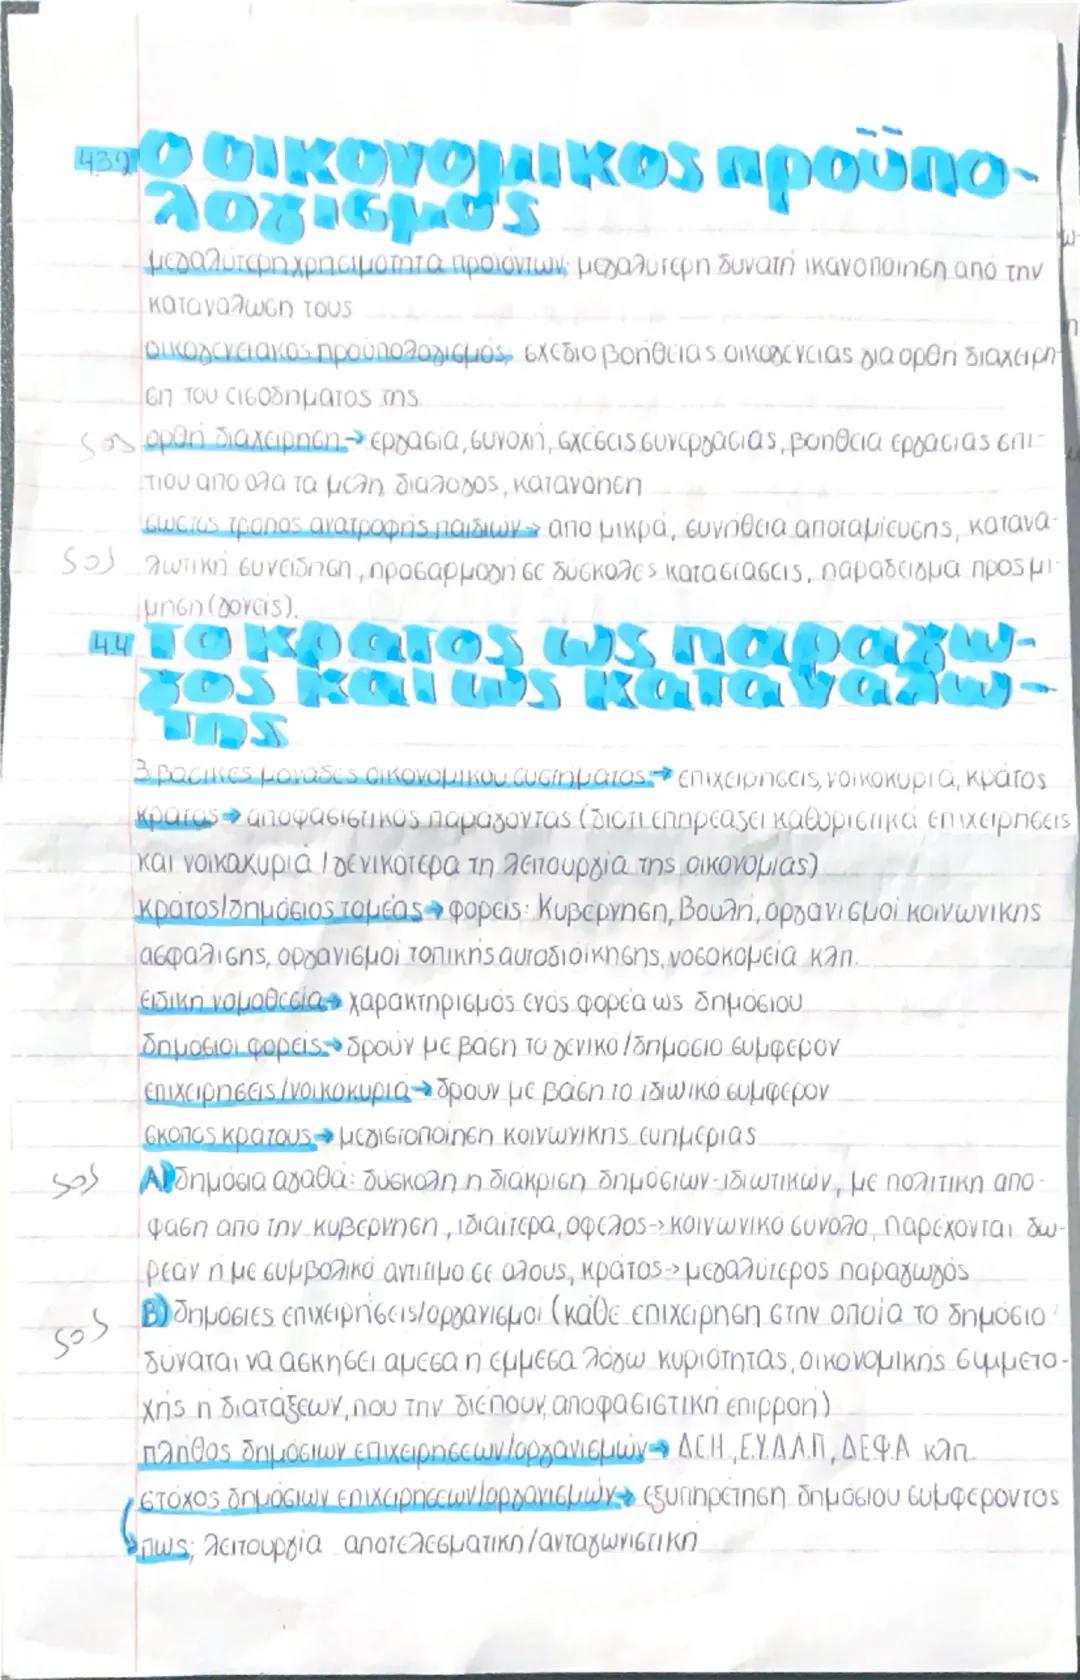 4.3.2 Ο οικονομικος προϋπο-
λογισμός
μεγαλύτερη χρησιμότητα προϊόντων; μεγαλύτερη δυνατή ικανοποίηση από την
κατανάλωση τους
οικογενειακός προϋπολογισμός; σχέδιο βοήθειας οικογένειας για ορθή διαχείρη-
ση του εισοδήματος της
SOS ορθή διαχείρηση→ εργασία, συνοχή, σχέσεις συνεργασίας, βοήθεια εργασίας σπι-
τιου από όλα τα μέλη, διάλογος, κατανόηση
σωστός τρόπος ανατροφής παιδιών→ από μικρά, συνήθεια αποταμίευσης, κατανα-
SOS λωτική συνείδηση, προσαρμογή σε δύσκολες καταστάσεις, παράδειγμα προς μί-
μηση (γονείς).
4.4 Το κρατος ως παραγω-
γος και ως καταναλω-
της
3 βασικές μονάδες οικονομικού συστήματος→ επιχειρήσεις, νοικοκυριά, κράτος
κράτος→ αποφασιστικός παράγοντας (διότι επηρεάζει καθοριστικά επιχειρήσεις
και νοικοκυριά / γενικότερα τη λειτουργία της οικονομίας)
κράτος/δημόσιος τομέας→ φορείς: Κυβέρνηση, Βουλή, οργανισμοί κοινωνικής
ασφάλισης, οργανισμοί τοπικής αυτοδιοίκησης, νοσοκομεία κλπ.
ειδική νομοθεσία→ χαρακτηρισμός ενός φορέα ως δημόσιου
δημόσιοι φορείς→ δρούν με βάση το γενικό/δημόσιο συμφέρον
επιχειρήσεις/νοικοκυριά→ δρουν με βάση το ιδιωικό συμφέρον
σκοπός κράτους→ μεγιστοποίηση κοινωνικής ευημερίας
SOS Α) δημόσια αγαθά: δύσκολη η διάκριση δημόσιων-ιδιωτικών, με πολιτική από-
φαση από την κυβέρνηση, ιδιαίτερα, οφελος-> κοινωνικό σύνολο, παρέχονται δω-
ρεάν η με συμβολικό αντίτιμο σε όλους, κράτος-> μεγαλύτερος παραγωγός
SOS Β) δημόσιες επιχειρήσεις/οργανισμοί (κάθε επιχείρηση στην οποία το δημόσιο
δύναται να ασκήσει άμεσα ή έμμεσα λόγω κυριότητας, οικονομικής συμμετο-
χής η διατάξεων, που την διέπουν, αποφασιστική επιρροή)
πλήθος δημόσιων επιχειρήσεων/οργανισμών→ ΔΕΗ, Ε.Υ.Δ.Α.Π, ΔΕΦΑ κλπ.
στόχος δημόσιων επιχειρήσεων/οργανισμών→ εξυπηρέτηση δημόσιου συμφέροντος
πως; λειτουργία αποτελεσματική/ανταγωνιστική